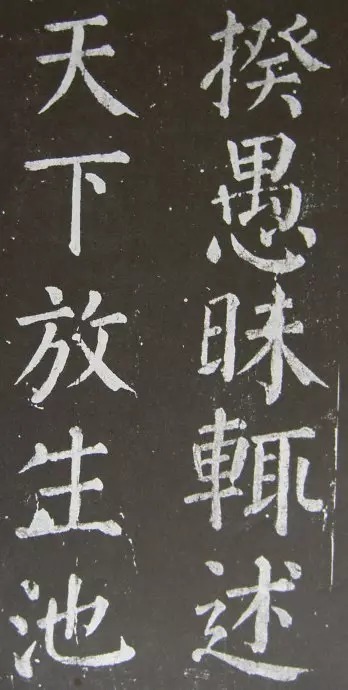 揆愚昧輒述
天下放生池